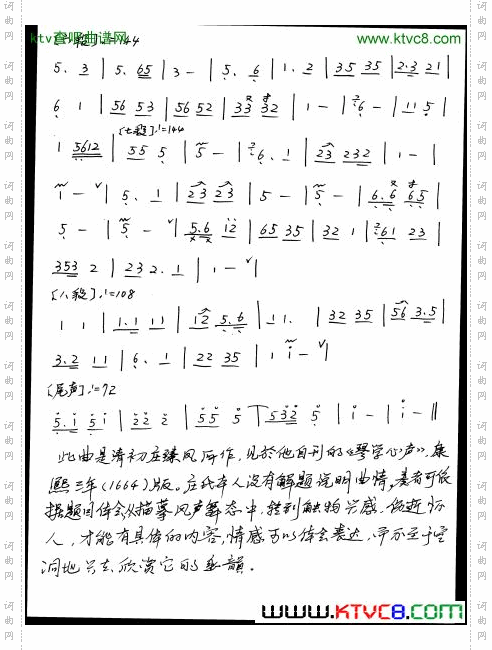 ktv查唱曲谱网
[六段]♩=144
www.ktvc8.com
5. 3 | 5. 65 | 3 - | 5. 6 | 1. 2 | 35 35 | 2·3 21 |
6 1 | 56 53 | 56 52 | 33 32 | 1 - | 6 - | 11 5 |
[七段]♩=144
1 5612 | 55 5 | 5 - | 6. 1 | 23 232 | 1 - |
1 - ∨ | 5. 1 | 23 23 | 5 - | 5 - | 6.6 65 |
5 - | 5 - ∨ | 5.6 12 | 65 35 | 32 1 | 61 23 |
353 2 | 23 2. 1 | 1 - ∨ |
[八段]♩=108
1 1 | 1.1 11 | 12 5.6 | 11. | 32 35 | 56 3.5 |
3.2 11 | 6. 1 | 22 35 | 1 1 - ∨ |
[尾声]♩=72
5.1 51 | 22 2 | 55 5 | 532 5 | 1 - | 1 - ‖
此曲是清初庄臻凤所作，见於他自刊的《琴学心声》，康
熙三年（1664）版。庄氏本人没有解题说明曲情，奏者可依
据题目体会从描摹风声舞态中，转到触物兴感，
人，才能有具体的内容，情感可以体会表达，而不至于空
洞地
www.KTVC8.com
词曲网